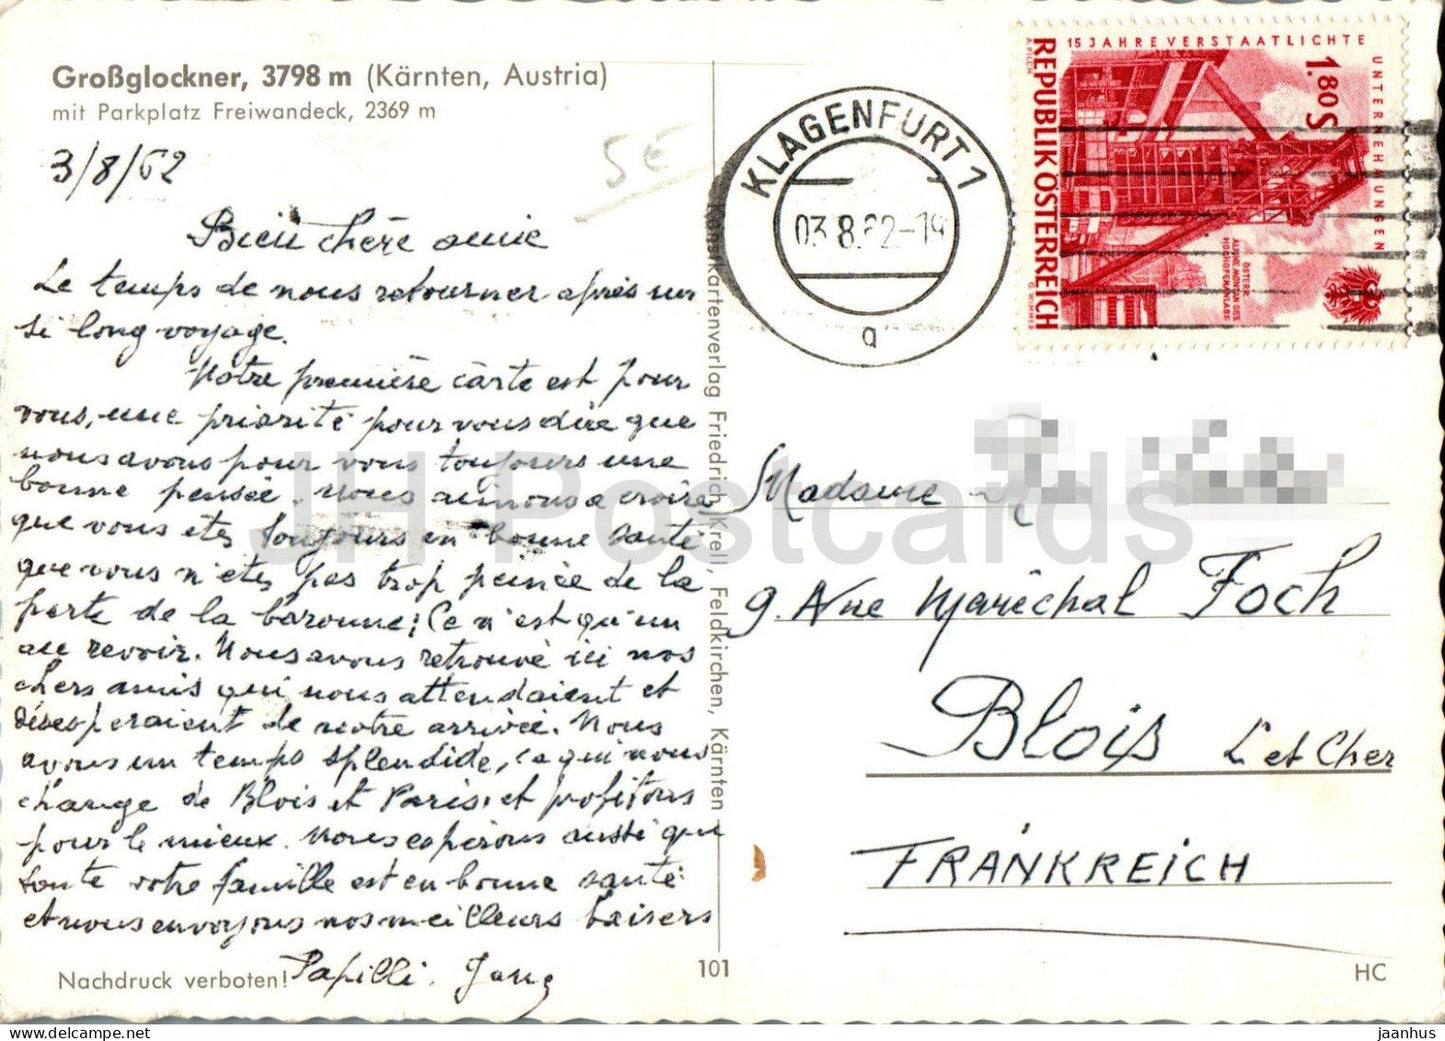 Großglockner, 3798 m (Kärnten, Austria)
mit Parkplatz Freiwandeck, 2369 m
3/8/62
5€
Bien chère amie
Le temps de nous retourner après un
si long voyage.
Notre première carte est pour
vous, une priorité pour vous dire que
nous avons pour vous toujours une
bonne pensée. Nous aimons a croire
que vous etes toujours en bonne santé
que vous n'etes pas trop peinée de la
perte de la baronne; Ce n'est qu'un
au revoir. Nous avons retrouvé ici nos
chers amis qui nous attendaient et
désesperaient de notre arrivée. Nous
avons un temps splendide, ce qui nous
change de Blois et Paris, et profitons
pour le mieux. Nous esperons aussi que
toute votre famille est en bonne santé
et nous envoyons nos meilleurs baisers
Papilli.
Nachdruck verboten!
Kunstkartenverlag Friedrich Krell, Feldkirchen, Kärnten
101
KLAGENFURT 1
03.8.62-19
a
15 JAHRE VERSTAATLICHTE
UNTERNEHMUNGEN
REPUBLIK ÖSTERREICH
1.80 S
A. PILCH
G. WIMMER
Madame
9. Ave Maréchal Foch
Blois L. et Cher
FRANKREICH
HC
JH Postcards
jaanhus